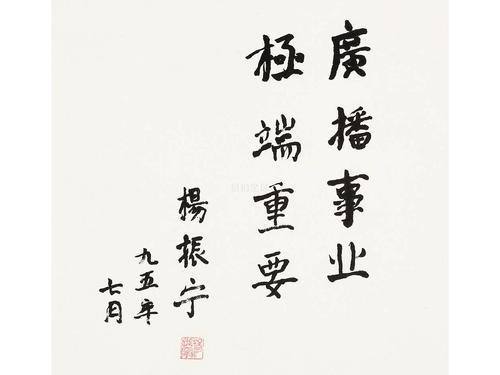 廣播事业
極端重要
楊振宁
九五年
七月